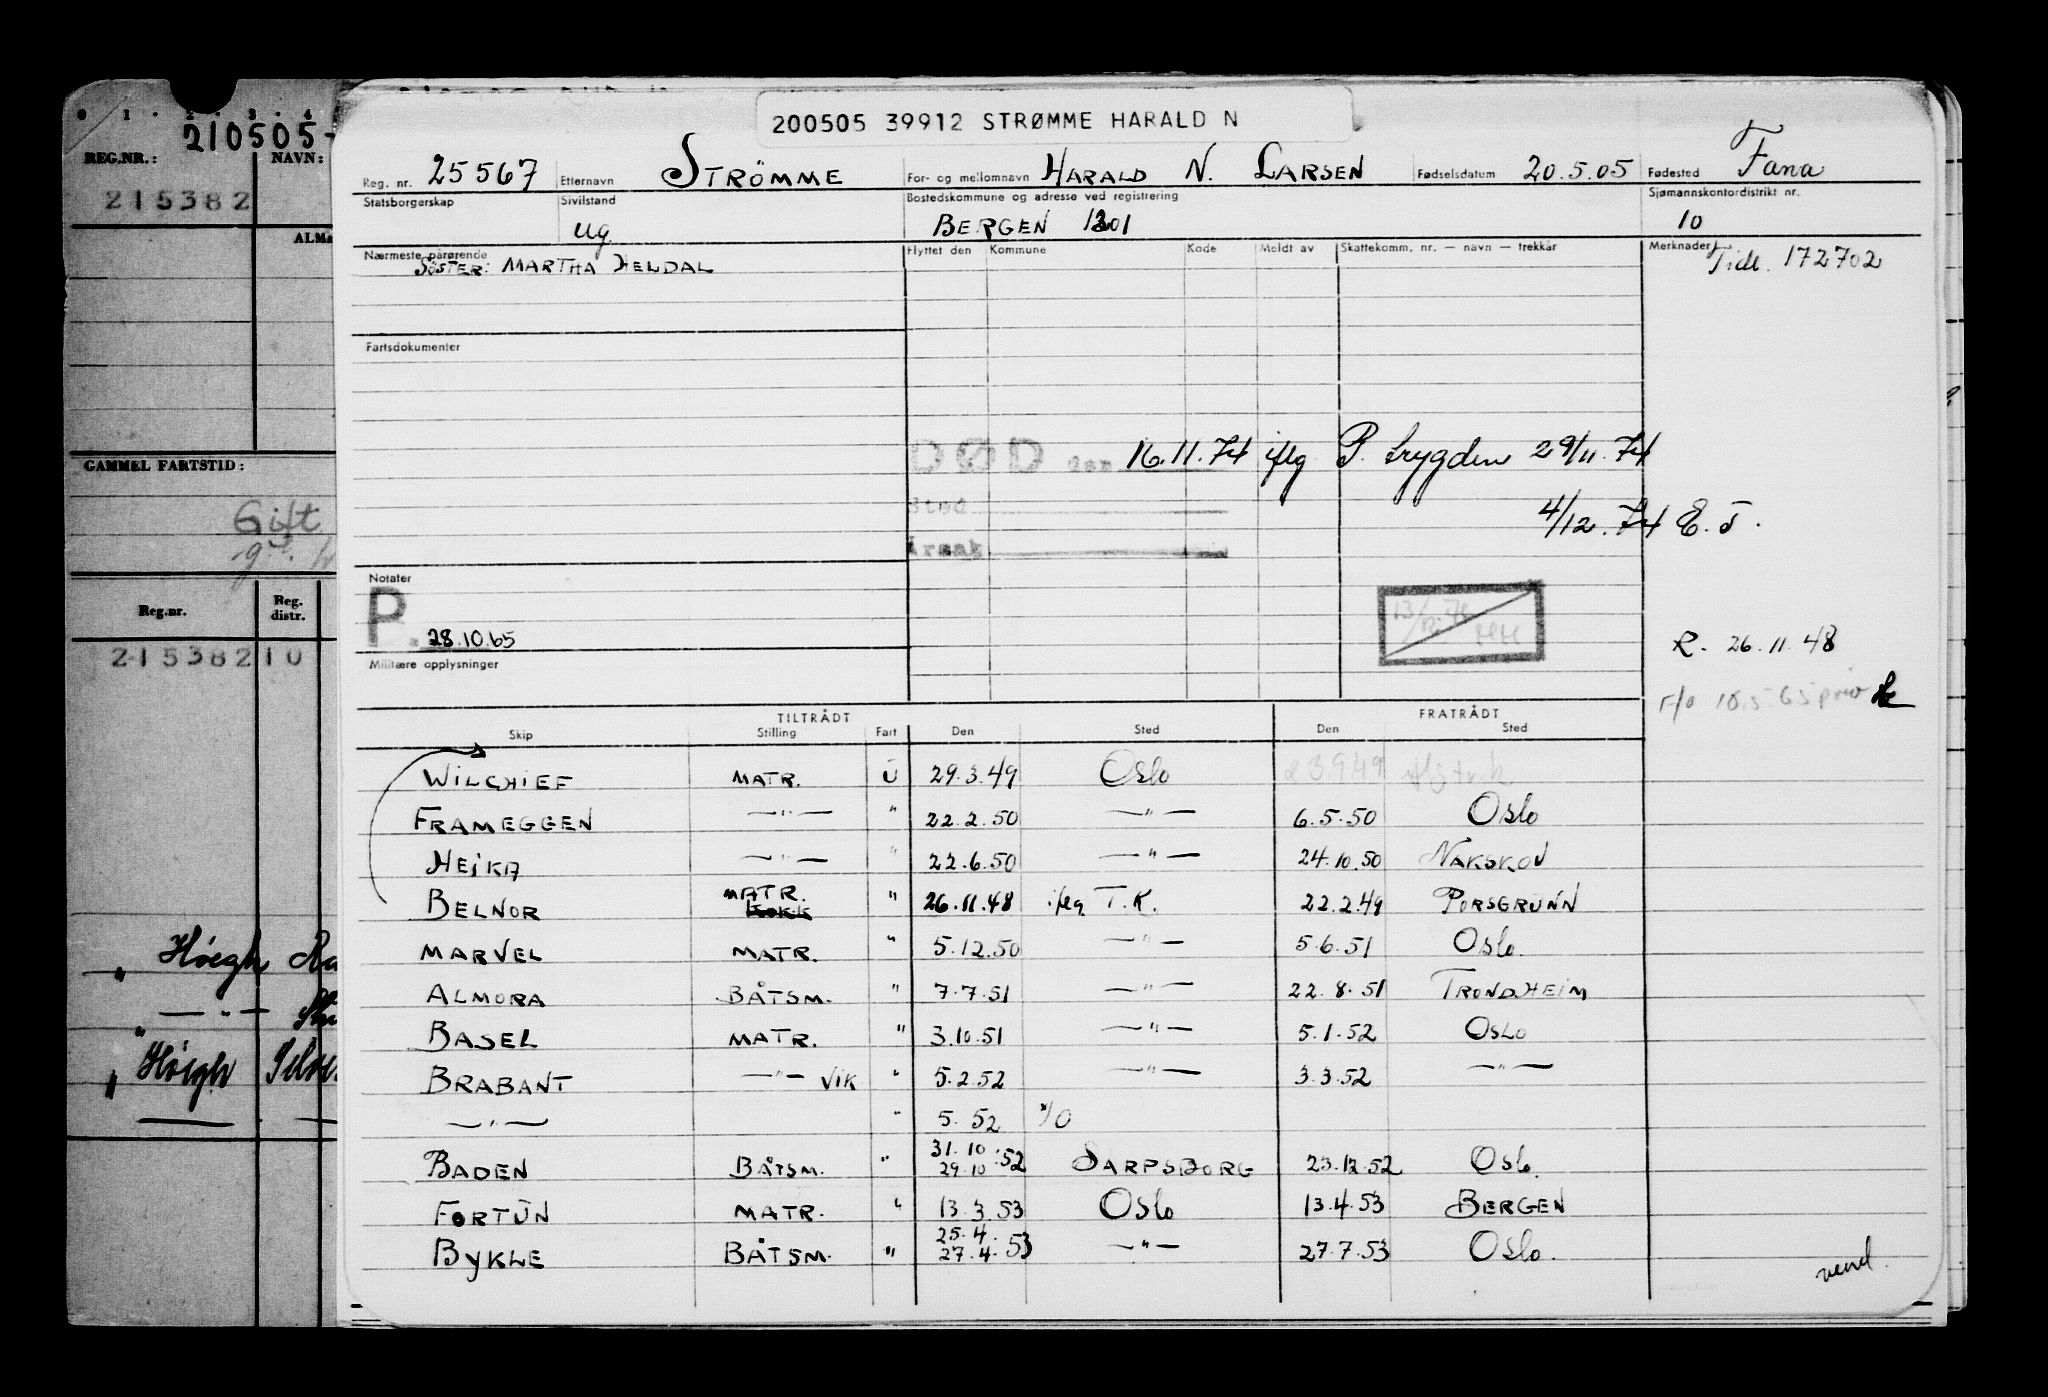 0 1 · 2 · 3 · 4
210505-
REG.NR.: NAVN:
215382
GAMMEL FARTSTID:
Gift
Reg.nr. Reg. distr.
215382 10
" Høegh
" — " —
" Høegh
200505 39912 STRØMME HARALD N
Reg. nr. 25567 Etternavn STRÖMME For- og mellomnavn HARALD N. LARSEN Fødselsdatum 20.5.05 Fødested Fana
Statsborgerskap Sivilstand Bostedskommune og adresse ved registrering Sjømannskontordistrikt nr.
ug. BERGEN 1301 10
Nærmeste pårørende Flyttet den Kommune Kode Meldt av Skattekomm. nr. — navn — trekkår Merknader
SÖSTER: MARTHA HELDAL Tidl. 172702
Fartsdokumenter
DØD den 16.11.74 iflg P. trygden 29/11.74
Sted 4/12.74 E.T.
Årsak
Notater
P. 28.10.65
R. 26.11.48
Militære opplysninger
F/o 18.5.65
TILTRÅDT FRATRÅDT
Skip Stilling Fart Den Sted Den Sted
WILCHIEF MATR. U 29.3.49 Oslo 23949
FRAMEGGEN — " — " 22.2.50 — " — 6.5.50 Oslo
HEIKA — " — " 22.6.50 — " — 24.10.50 NAKSKOV
BELNOR MATR. " 26.11.48 iflg T.K. 22.2.49 PORSGRUNN
MARVEL MATR. " 5.12.50 — " — 5.6.51 Oslo.
ALMORA BÅTSM. " 7.7.51 — " — 22.8.51 TRONDHEIM
BASEL MATR. " 3.10.51 — " — 5.1.52 OSLO
BRABANT — " — VIK " 5.2.52 — " — 3.3.52 — " —
— " — " 5. 52 %O
BADEN BÅTSM. " 31.10 29.10 .52 SARPSBORG 23.12.52 Oslo.
FORTUN MATR. " 13.3.53 Oslo 13.4.53 BERGEN
BYKLE BÅTSM. " 25.4. 27.4. 53 — " — 27.7.53 Oslo.
vend.